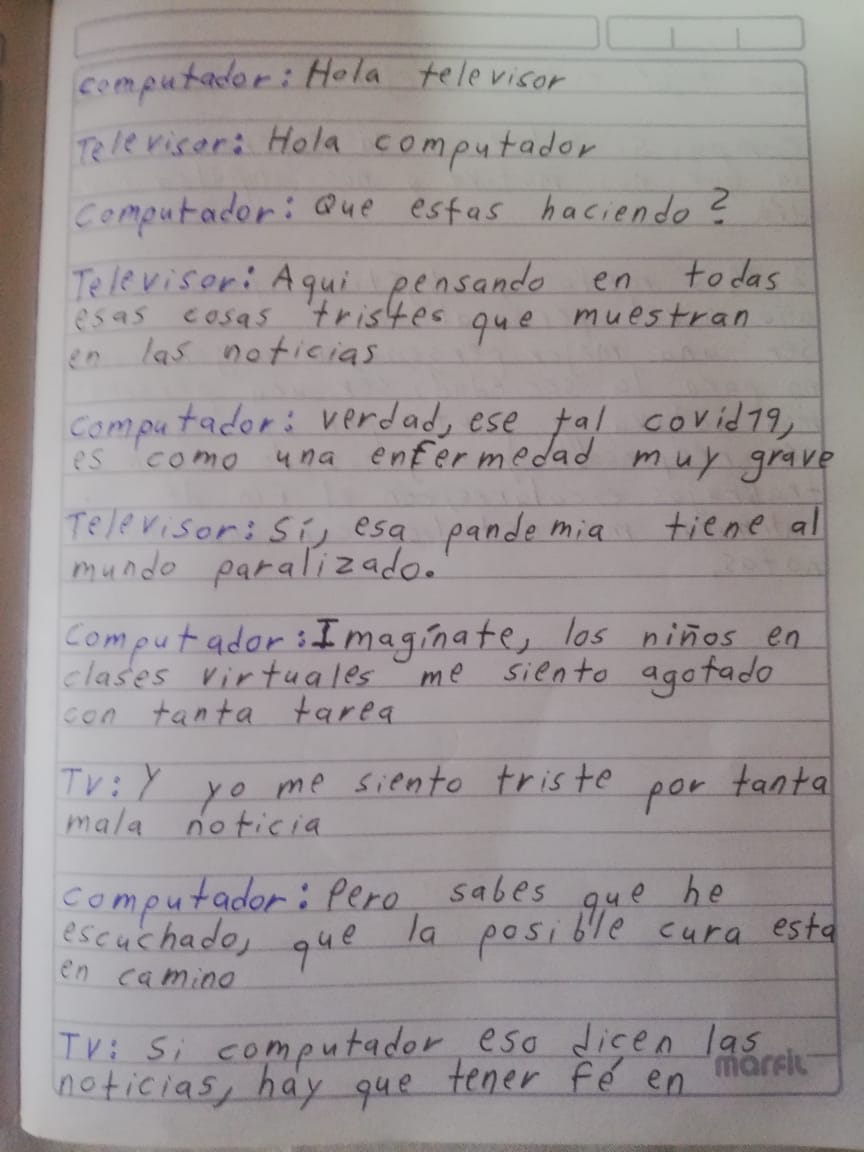 computador: Hola televisor
Televisor: Hola computador
Computador: Que estas haciendo?
Televisor: Aqui pensando en todas
esas cosas tristes que muestran
en las noticias
Computador: verdad, ese tal covid19,
es como una enfermedad muy grave
Televisor: Sí, esa pandemia tiene al
mundo paralizado.
Computador: Imagínate, los niños en
clases virtuales me siento agotado
con tanta tarea
TV: Y yo me siento triste por tanta
mala noticia
Computador: Pero sabes que he
escuchado, que la posible cura esta
en camino
TV: Si computador eso dicen las
noticias, hay que tener fé en
marfil